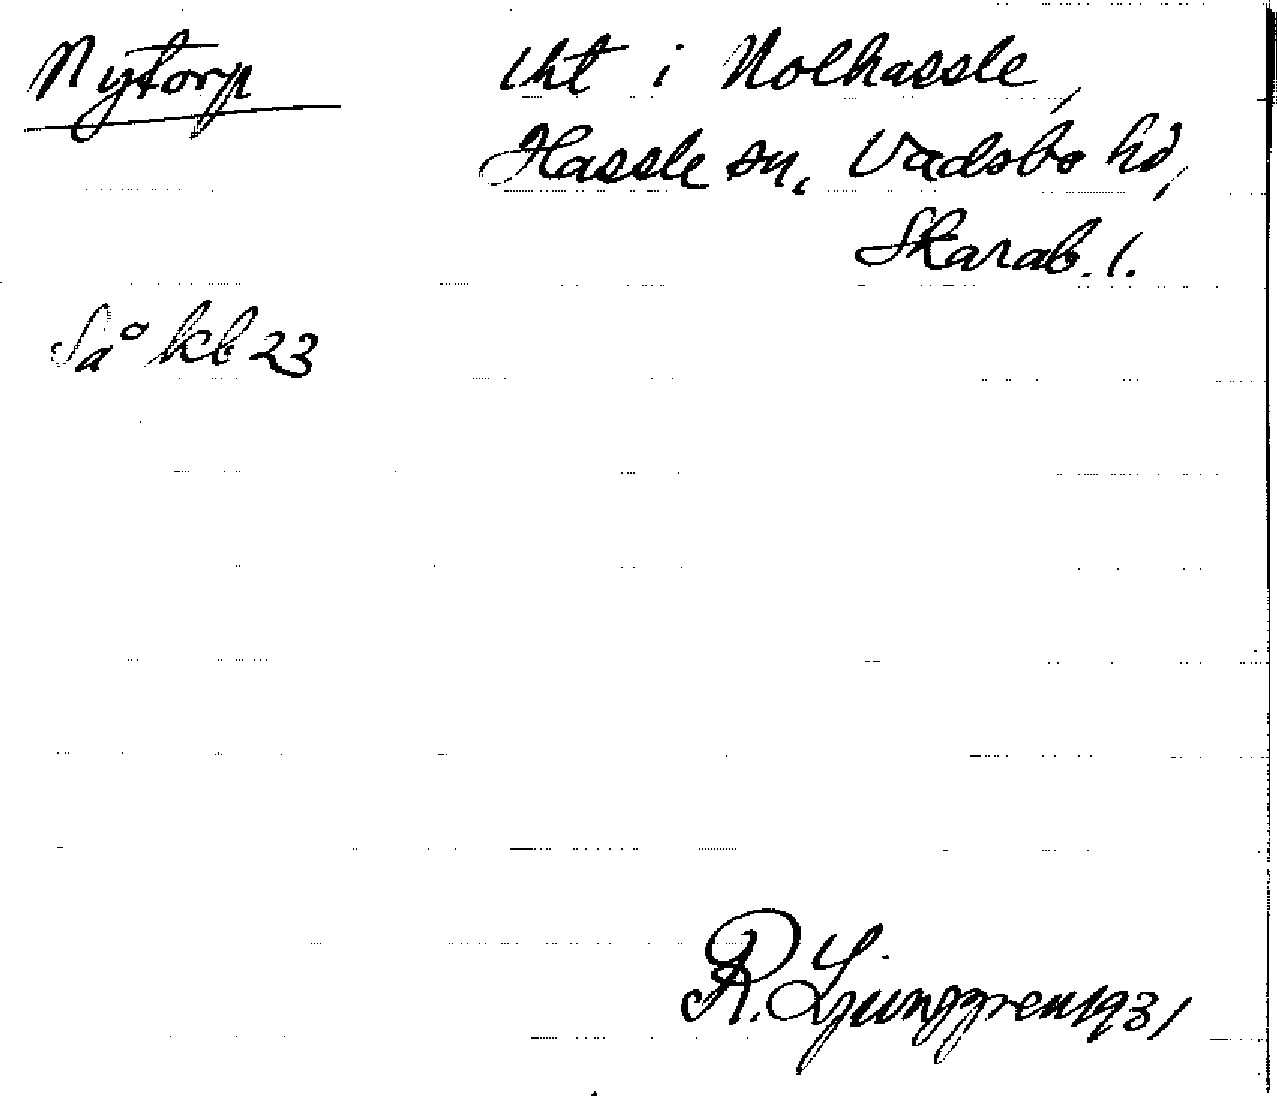 Nytorp
lht i Nolhassle,
Hassle sn, Vadsbo hd,
Skarab. l.
Så kb 23
R. Ljunggren 1931